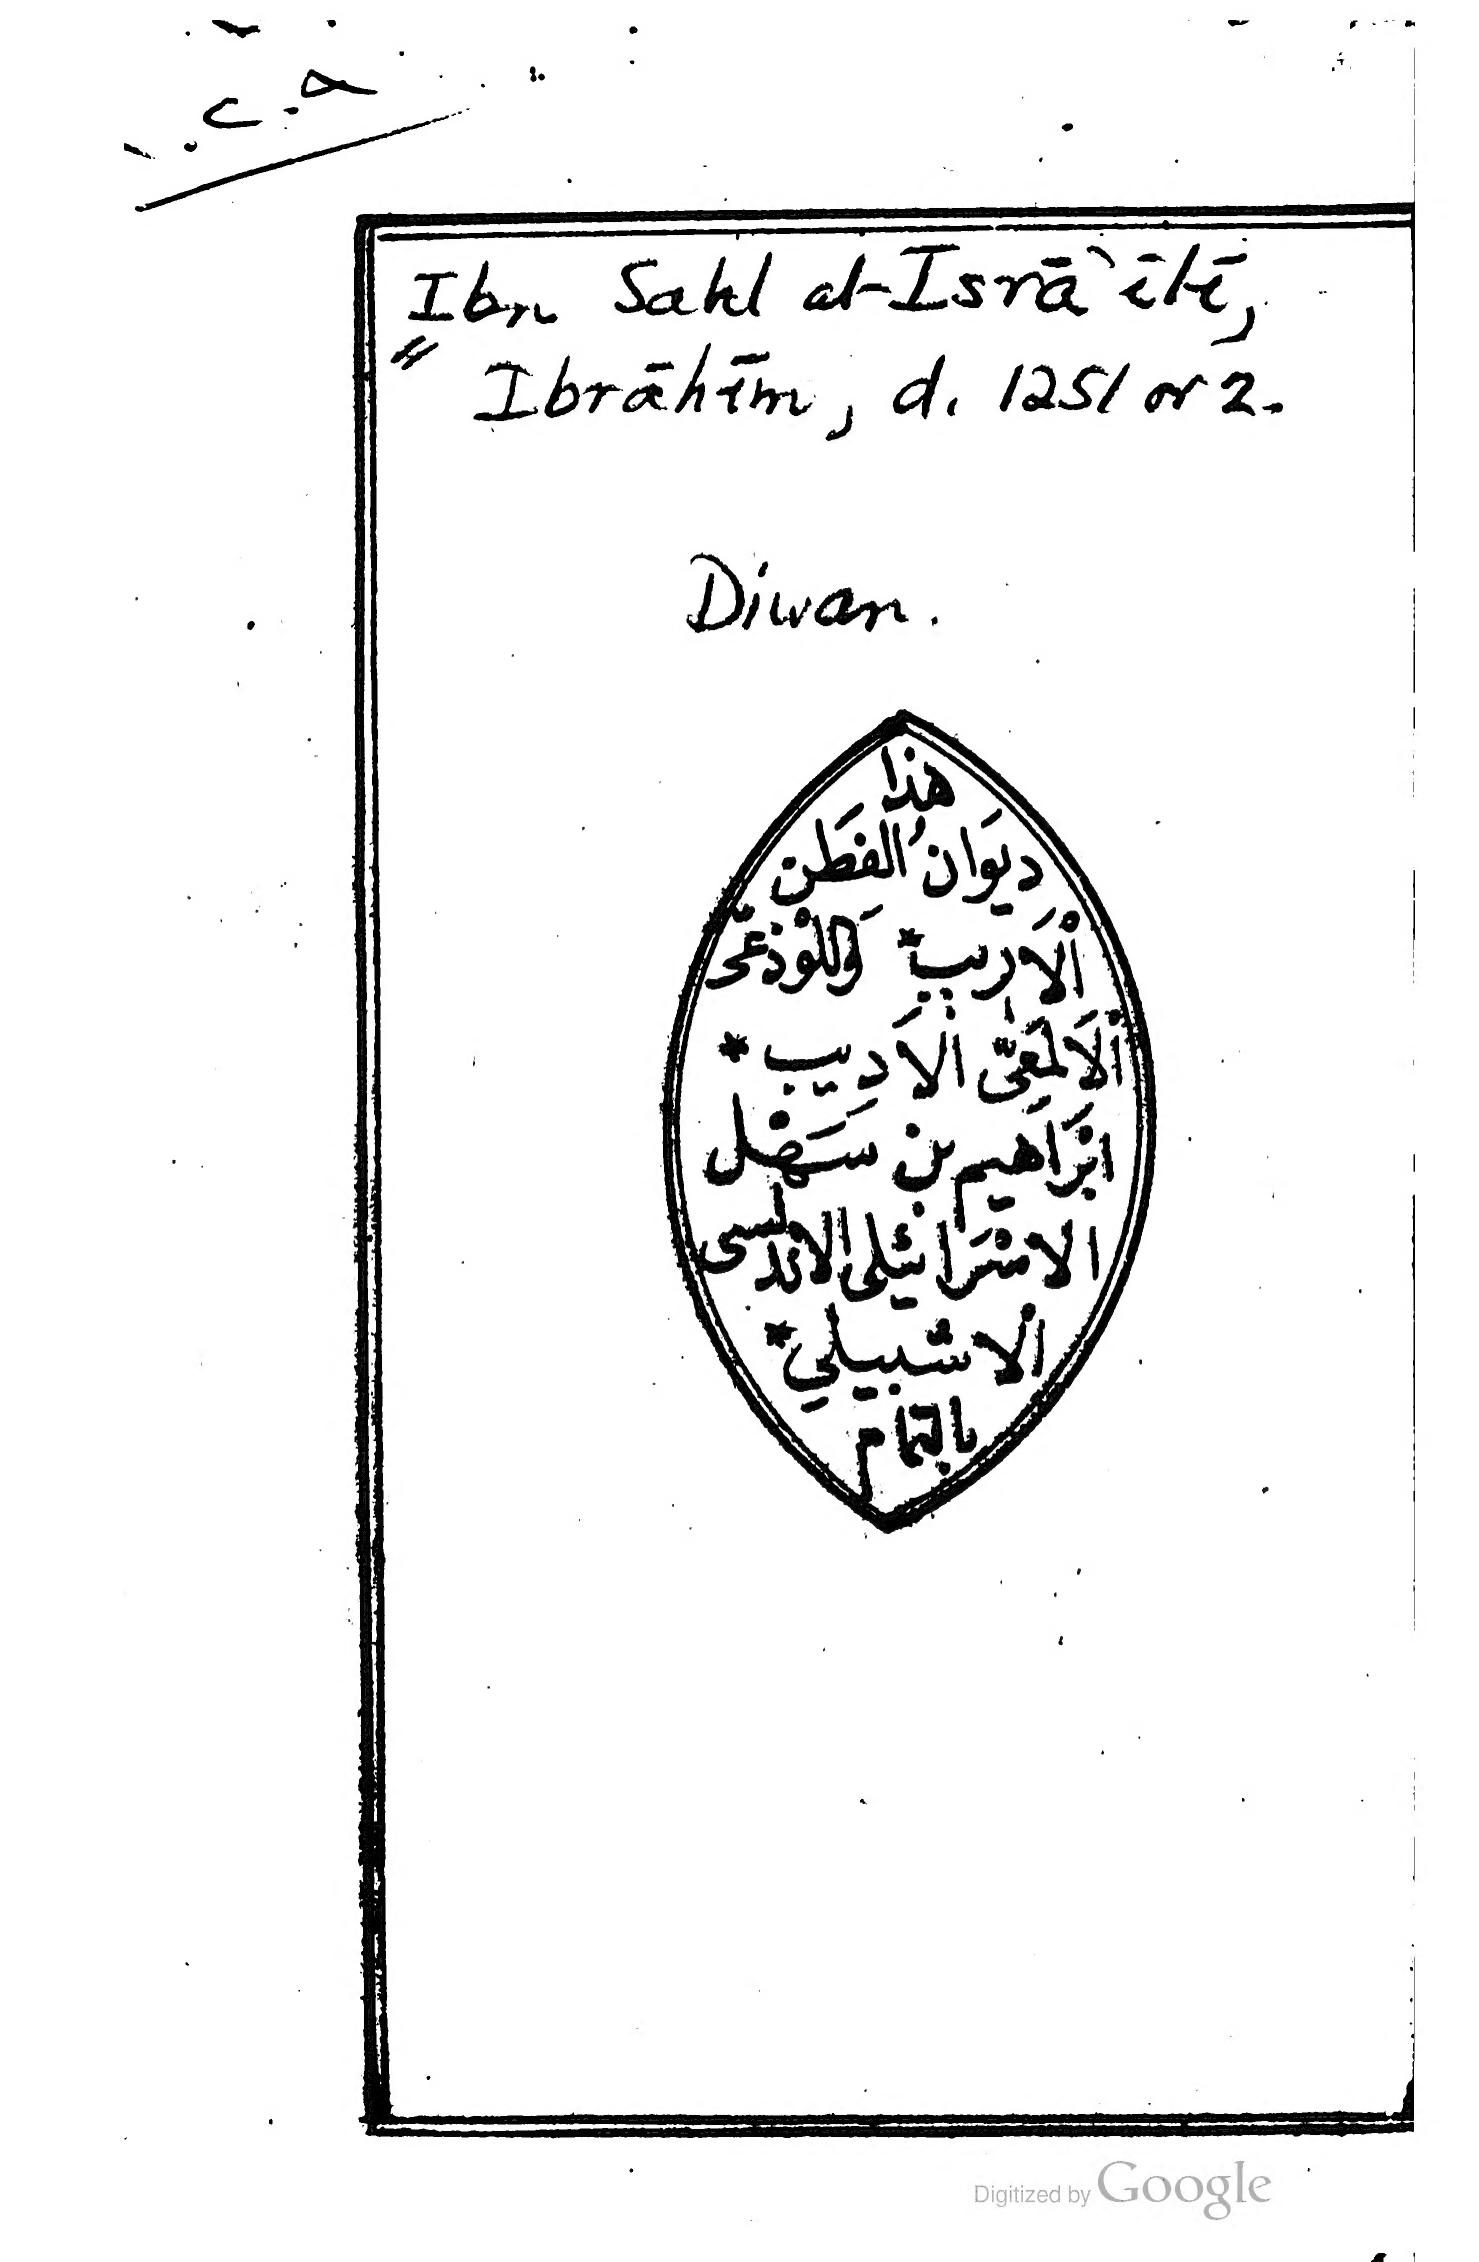 Ibn Sahl al-Isrā`īlī,
Ibrāhīm, d. 1251 or 2.
Diwan.
هذا
ديَوانُ الفَطَن
ألْاَريب * وَللوْذعّى
ألْاَلمَعىّ الاَديب *
ابْرَاهَيم بن سَهْل
الاسْرَائيلى الاندلسى
ألاشبيلي *
بالتمام
Digitized by Google